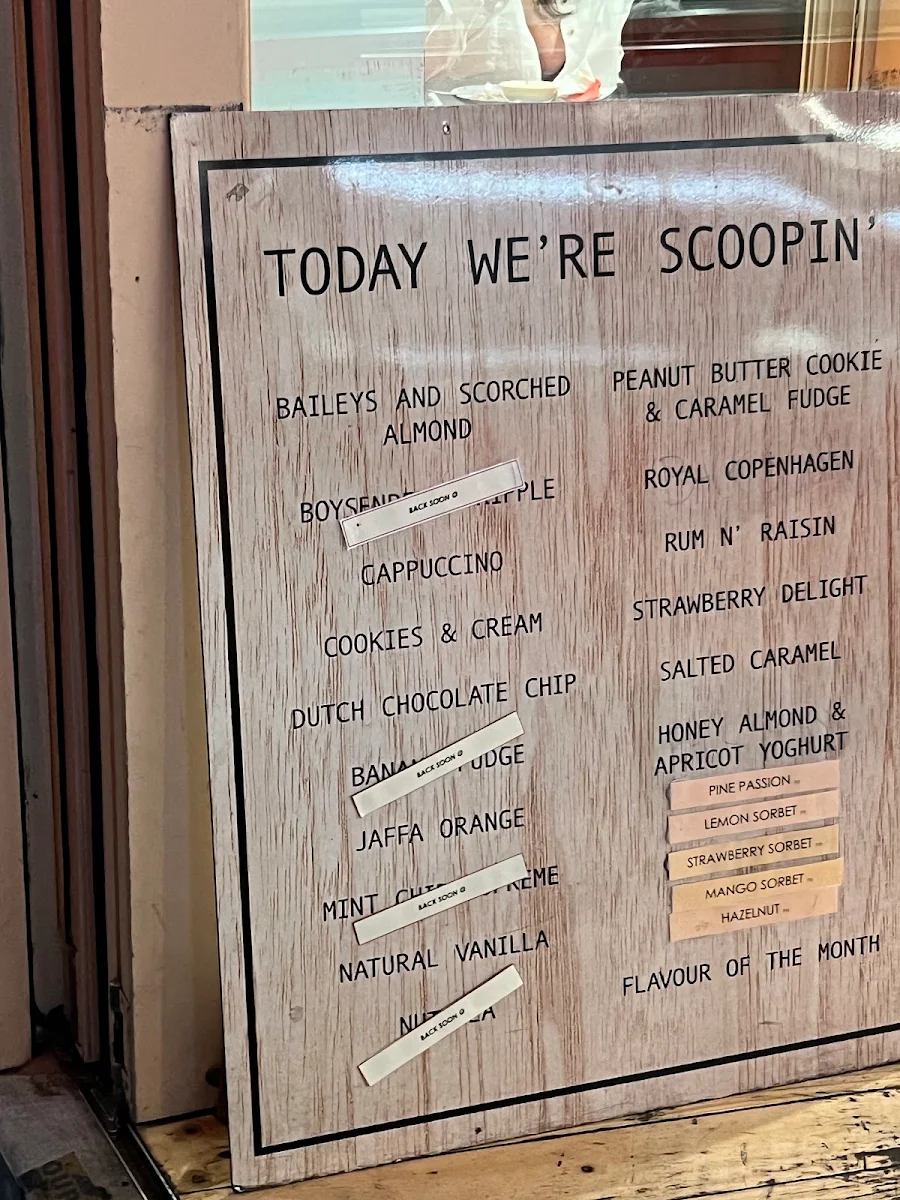 TODAY WE'RE SCOOPIN'
BAILEYS AND SCORCHED
ALMOND
BACK SOON
CAPPUCCINO
COOKIES & CREAM
DUTCH CHOCOLATE CHIP
BACK SOON
JAFFA ORANGE
MINT
BACK SOON
NATURAL VANILLA
BACK SOON
PEANUT BUTTER COOKIE
& CARAMEL FUDGE
ROYAL COPENHAGEN
RUM N' RAISIN
STRAWBERRY DELIGHT
SALTED CARAMEL
HONEY ALMOND &
APRICOT YOGHURT
PINE PASSION
LEMON SORBET
STRAWBERRY SORBET
MANGO SORBET
HAZELNUT
FLAVOUR OF THE MONTH